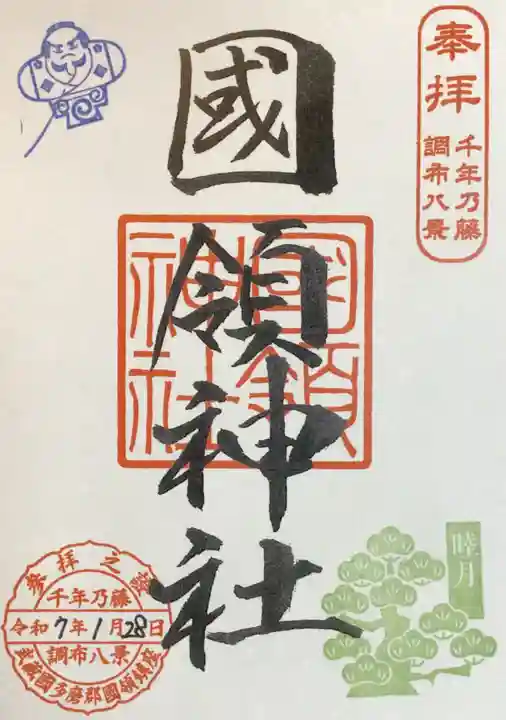 奉拝
千年乃藤
調布八景
國領神社
國領
神社
睦月
参拝之證
千年乃藤
令和7年1月28日
調布八景
武蔵國多磨郡國領鎮座